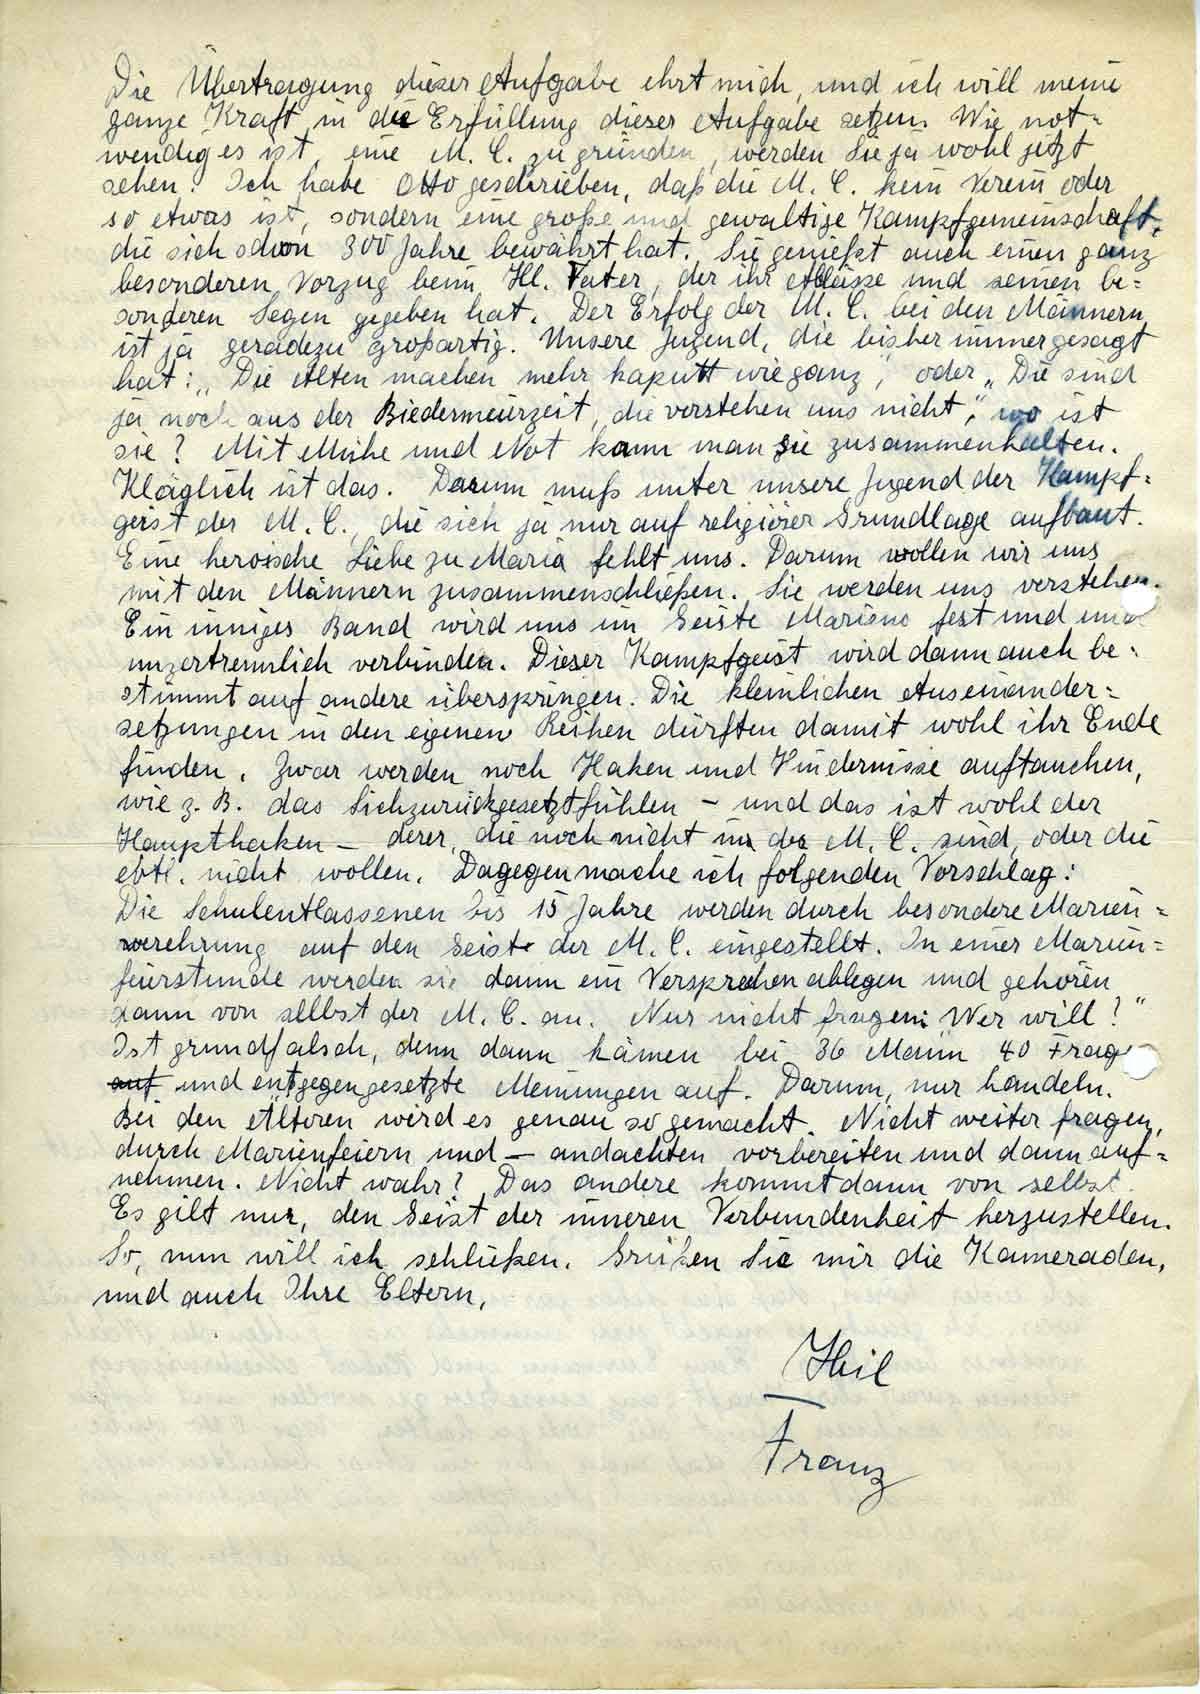 Die Übertragung dieser Aufgabe ehrt mich, und ich will meine
ganze Kraft in die Erfüllung dieser Aufgabe setzen. Wie not=
wendig es ist, eine M. C. zu gründen, werden Sie ja wohl jetzt
sehen. Ich habe Otto geschrieben, daß die M. C. kein Verein oder
so etwas ist, sondern eine große und gewaltige Kampfgemeinschaft,
die sich schon 300 Jahre bewährt hat. Sie genießt auch einen ganz
besonderen Vorzug beim Hl. Vater, der ihr Ablässe und seinen be=
sonderen Segen gegeben hat. Der Erfolg der M. C. bei den Männern
ist ja geradezu großartig. Unsere Jugend, die bisher immer gesagt
hat: „Die Alten machen mehr kaputt wie ganz", oder „Die sind
ja noch aus der Biedermeierzeit, die verstehen uns nicht," wo ist
sie? Mit Mühe und Not kann man sie zusammenhalten.
Kläglich ist das. Darum muß unter unsere Jugend der Kampf=
geist der M. C., die sich ja nur auf religiöser Grundlage aufbaut.
Eine heroische Liebe zu Maria fehlt uns. Darum wollen wir uns
mit den Männern zusammenschließen. Sie werden uns verstehen.
Ein inniges Band wird uns im Geiste Mariens fest und und
unzertrennlich verbinden. Dieser Kampfgeist wird dann auch be=
stimmt auf andere überspringen. Die kleinlichen Auseinander=
setzungen in den eigenen Reihen dürften damit wohl ihr Ende
finden. Zwar werden noch Haken und Hindernisse auftauchen,
wie z. B. das Sichzurückgesetztfühlen – und das ist wohl der
Haupthaken – derer, die noch nicht in der M. C. sind, oder die
ebtl. nicht wollen. Dagegen mache ich folgenden Vorschlag:
Die Schulentlassenen bis 15 Jahre werden durch besondere Marien=
verehrung auf den Geist der M. C. eingestellt. In einer Marien=
feierstunde werden sie dann ein Versprechen ablegen und gehören
dann von selbst der M. C. an. Nur nicht fragen: „Wer will?"
Ist grundfalsch, denn dann kämen bei 36 Mann 40 Frage
auf und entgegengesetzte Meinungen auf. Darum, nur handeln.
Bei den Älteren wird es genau so gemacht. Nicht weiter fragen,
durch Marienfeiern und – andachten vorbereiten und dann auf=
nehmen. Nicht wahr? Das andere kommt dann von selbst.
Es gilt nur, den Geist der inneren Verbundenheit herzustellen.
So, nun will ich schließen. Grüßen Sie mir die Kameraden,
und auch Ihre Eltern.
Heil
Franz